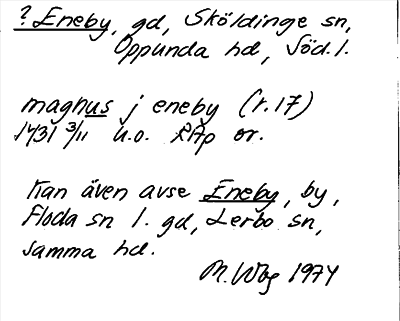 ? Eneby, gd, Sköldinge sn,
Oppunda hd, Söd. l.
magnus j eneby (r. 17)
1431 3/11 u.o. RAp or.
Kan även avse Eneby, by,
Floda sn l. gd, Lerbo sn,
samma hd.
M. Wbg 1974